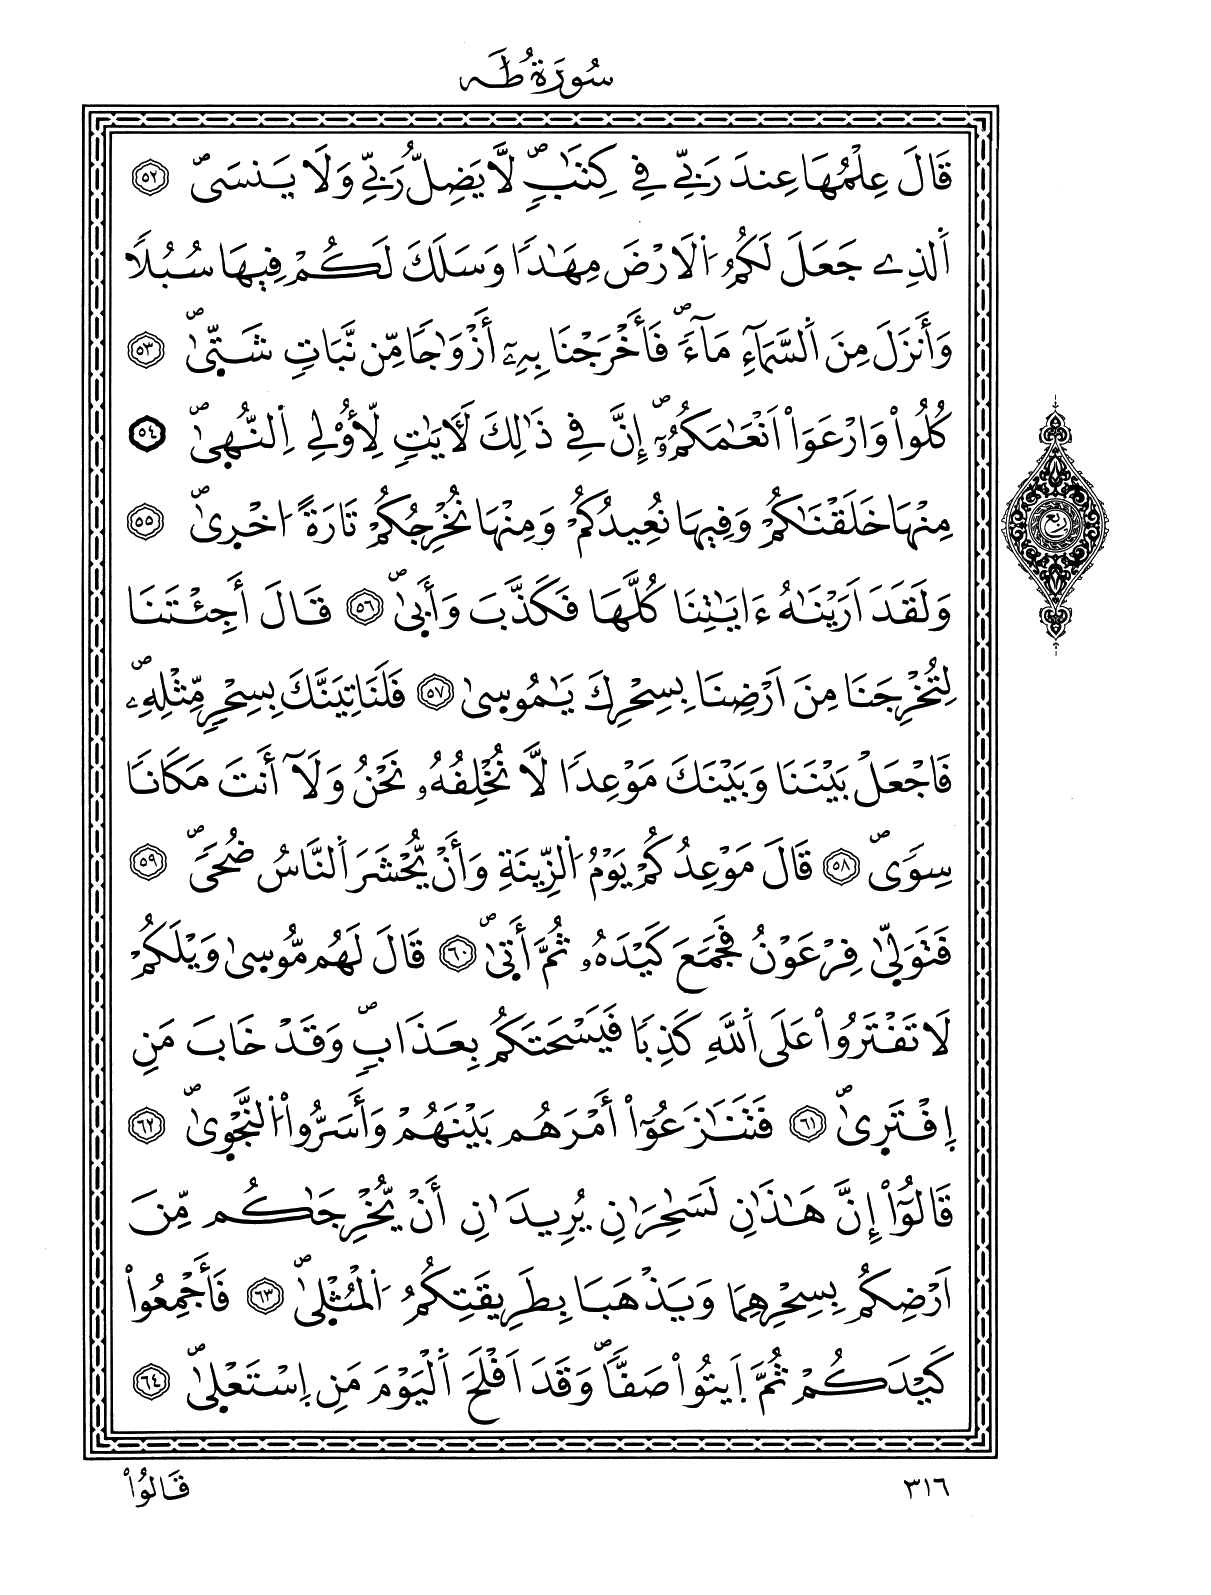 سُورَةُ طَهَ
قَالَ عِلْمُهَا عِندَ رَبِّے فِے كِتَٰبٖۖ لَّا يَضِلُّ رَبِّے وَلَا يَنسَيۖ ٥٢
اَ۬لذِے جَعَلَ لَكُمُ اُ۬لَارْضَ مِهَٰداٗ وَسَلَكَ لَكُمْ فِيهَا سُبُلاٗ
وَأَنزَلَ مِنَ اَ۬لسَّمَآءِ مَآءٗۖ فَأَخْرَجْنَا بِهِۦٓ أَزْوَٰجاٗ مِّن نَّبَاتٖ شَتّ۪يٰۖ ٥٣
كُلُواْ وَارْعَوَاْ اَنْعَٰمَكُمُۥٓۖ إِنَّ فِے ذَٰلِكَ لَأٓيَٰتٖ لِّأُوْلِے اِ۬لنُّه۪يٰۖ ٥٤
مِنْهَا خَلَقْنَٰكُمْ وَفِيهَا نُعِيدُكُمْ وَمِنْهَا نُخْرِجُكُمْ تَارَةً اُخْر۪يٰۖ ٥٥
وَلَقَدَ اَرَيْنَٰهُ ءَايَٰتِنَا كُلَّهَا فَكَذَّبَ وَأَب۪يٰۖ ٥٦ قَالَ أَجِئْتَنَا
لِتُخْرِجَنَا مِنَ اَرْضِنَا بِسِحْرِكَ يَٰمُوس۪يٰ ٥٧ فَلَنَاتِيَنَّكَ بِسِحْرٖ مِّثْلِهِۦۖ
فَاجْعَلْ بَيْنَنَا وَبَيْنَكَ مَوْعِداٗ لَّا نُخْلِفُهُۥ نَحْنُ وَلَآ أَنتَ مَكَاناٗ
سِويٗۖ ٥٨ قَالَ مَوْعِدُكُمْ يَوْمُ اُ۬لزِّينَةِ وَأَنْ يُّحْشَرَ اَ۬لنَّاسُ ضُحيٗۖ ٥٩
فَتَوَلّ۪يٰ فِرْعَوْنُ فَجَمَعَ كَيْدَهُۥ ثُمَّ أَت۪يٰۖ ٦٠ قَالَ لَهُم مُّوس۪يٰ وَيْلَكُمْ
لَا تَفْتَرُواْ عَلَي اَ۬للَّهِ كَذِباٗ فَيَسْحَتَكُم بِعَذَابٖۖ وَقَدْ خَابَ مَنِ
اِ۪فْتَر۪يٰۖ ٦١ فَتَنَٰزَعُوٓاْ أَمْرَهُم بَيْنَهُمْ وَأَسَرُّواْ اُ۬لنَّجْو۪يٰۖ ٦٢
قَالُوٓاْ إِنَّ هَٰذَٰنِ لَسَٰحِرَٰنِ يُرِيدَٰنِ أَنْ يُّخْرِجَٰكُم مِّنَ
اَرْضِكُم بِسِحْرِهِمَا وَيَذْهَبَا بِطَرِيقَتِكُمُ اُ۬لْمُثْل۪يٰۖ ٦٣ فَأَجْمِعُواْ
كَيْدَكُمْ ثُمَّ اَ۪يتُواْ صَفّاٗۖ وَقَدَ اَفْلَحَ اَ۬لْيَوْمَ مَنِ اِ۪سْتَعْل۪يٰۖ ٦٤
ربع
٣١٦ قَالُواْ